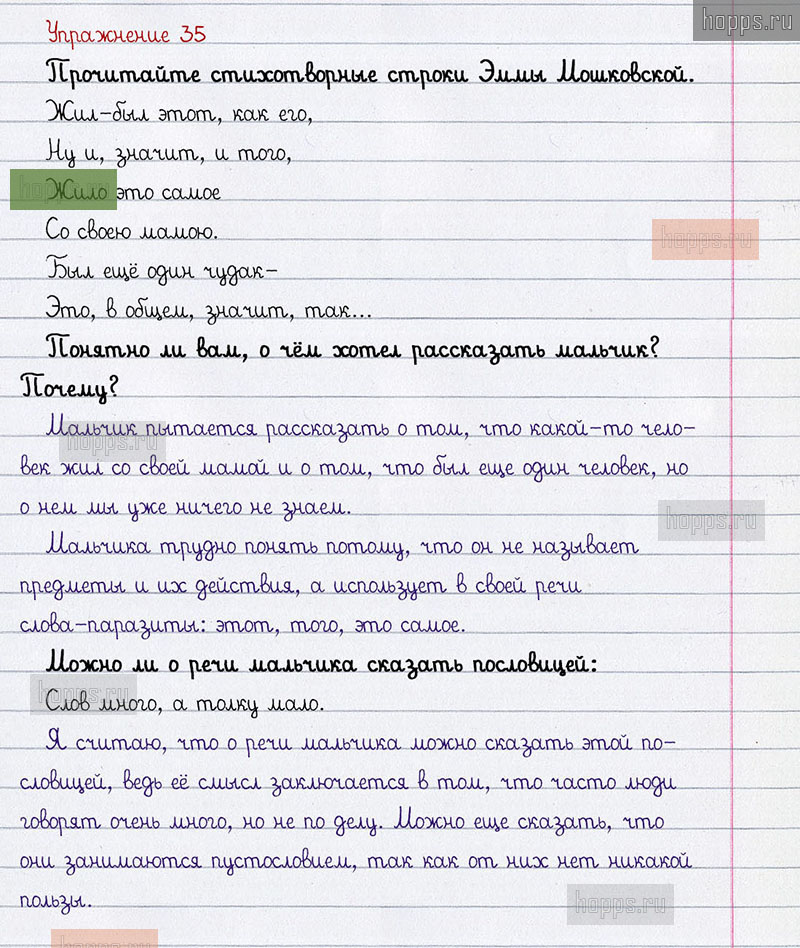 hopps.ru
Упражнение 35
Прочитайте стихотворные строки Эммы Мошковской.
Жил-был этот, как его,
Ну и, значит, и того,
Жило это самое
hopps.ru
Со своею мамою.
Был ещё один чудак-
Это, в общем, значит, так...
Понятно ли вам, о чём хотел рассказать мальчик?
Почему?
Мальчик пытается рассказать о том, что какай-то чело-
hopps.ru
век жил со своей мамай и о том, что был еще один человек, но
о нем мы уже ничего не знаем.
hopps.ru
Мальчика трудно понять потому, что он не называет
предметы и их действия, а использует в своей речи
слова-паразиты: этот, того, это самое.
Можно ли о речи мальчика сказать пословицей:
hopps.ru
Слов много, а толку мало.
Я считаю, что о речи мальчика можно сказать этой по-
словицей, ведь её смысл заключается в том, что часто люди
говорят очень много, но не по делу. Можно еще сказать, что
они занимаются пустословием, так как от них нет никакой
пользы.
hopps.ru